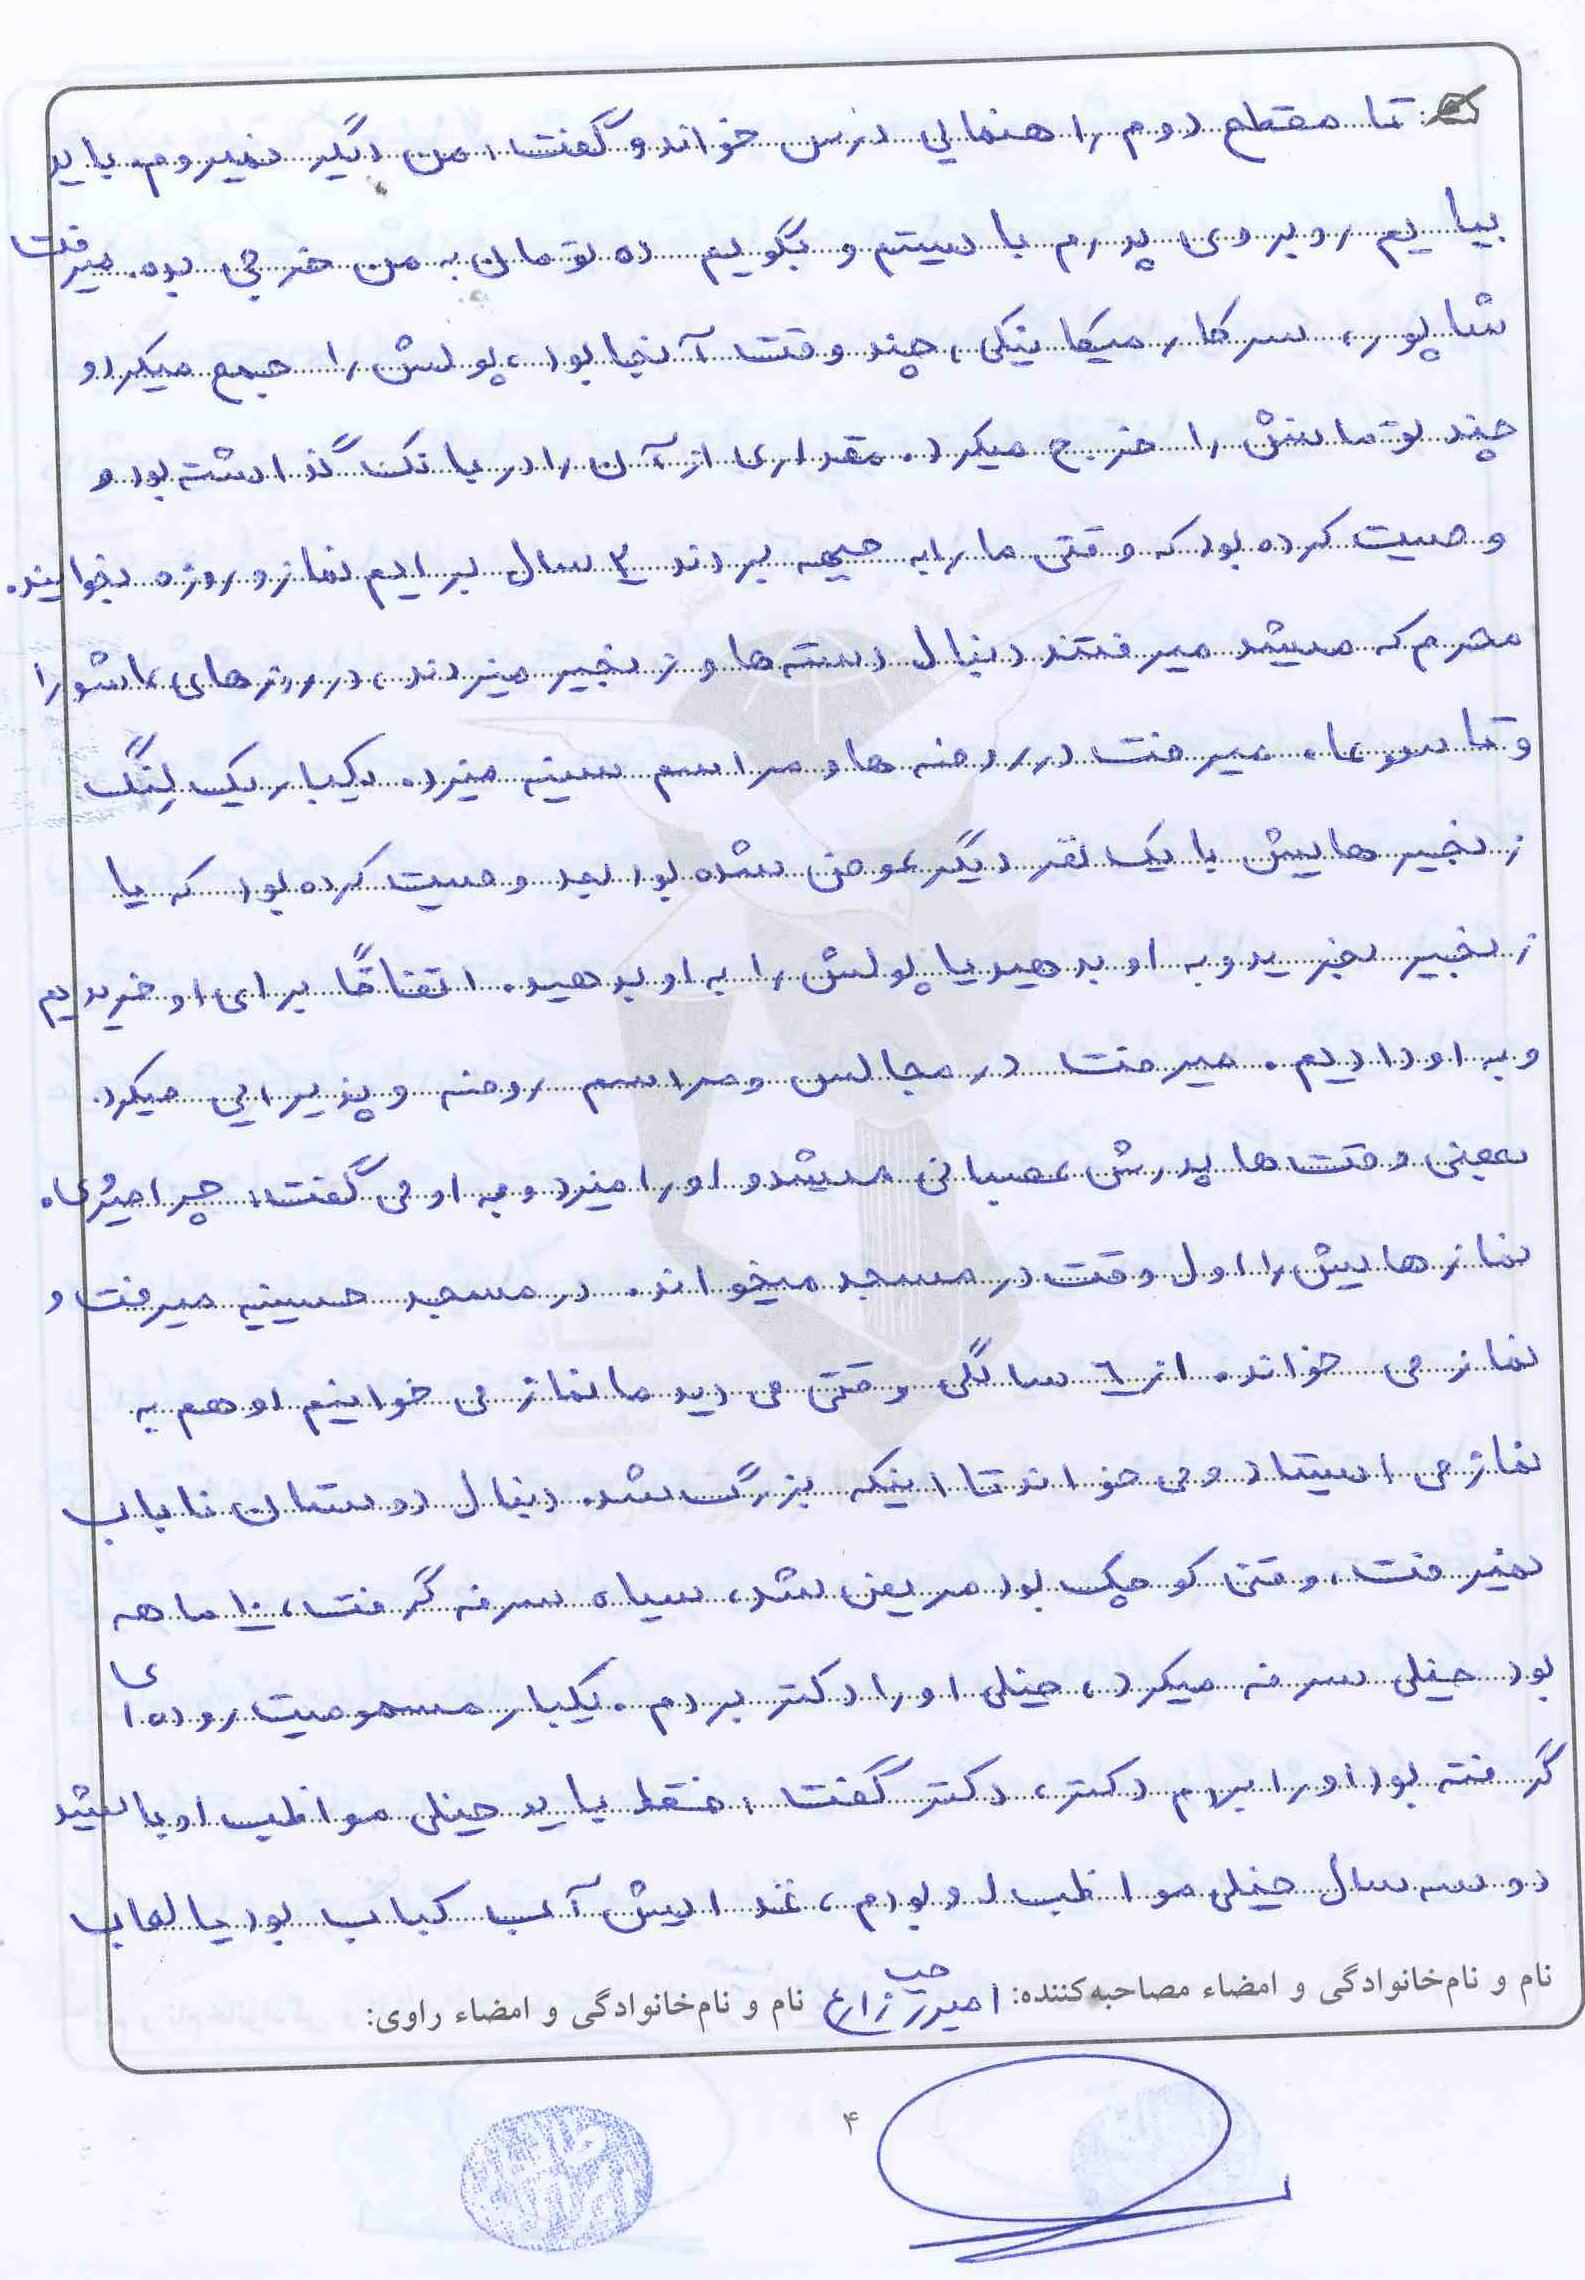 تا مقطع دوم راهنمایی درس خواند و گفت: من دیگر نمیروم. باید
بیایم روبروی پدرم بایستم و بگویم ده تومان به من خرجی بده. میرفت
شاپور، سر کار میکانیکی، چند وقت آنجا بود، پولش را جمع میکرد و
چند تومانش را خرج میکرد. مقداری از آن را در بانک گذاشته بود و
وصیت کرده بود که وقتی ما را به جبهه بردند ۳ سال برایم نماز و روزه بخوانید.
محرم که میشد میرفتند دنبال دسته‌ها و زنجیر میزدند، در روزهای عاشورا
و تاسوعا. میرفت در روضه ها و مراسم سینه میزد. یکبار یک لِنگ
زنجیرهایش با یک نفر دیگر عوض شده بود بعد وصیت کرده بود که یا
زنجیر بخرید و به او بدهید یا پولش را به او بدهید. اتفاقاً برای او خریدیم
و به او دادیم. میرفت در مجالس و مراسم روضه و پذیرایی میکرد.
بعضی وقت‌ها پدرش عصبانی میشد و او را میزد و به او می گفت: چرا میروی؟
نمازهایش را اول وقت در مسجد میخواند. در مسجد حسینیه میرفت و
نماز می خواند. از ٦ سالگی وقتی می دید ما نماز می خوانیم او هم به
نماز می ایستاد و می خواند تا اینکه بزرگ شد. دنبال دوستان ناباب
نمیرفت، وقتی کوچک بود مریض شد، سیاه سرفه گرفت، ۱۰ ماهه
بود خیلی سرفه میکرد، خیلی او را دکتر بردم. یکبار مسمومیت روده ای
گرفته بود او را بردم دکتر، دکتر گفت: فقط باید خیلی مواظب او باشید
دو سه سال خیلی مواظب او بودم، غذایش آب کباب بود یا لعاب
نام و نام‌خانوادگی و امضاء مصاحبه‌کننده: امیررجب زارع نام و نام‌خانوادگی و امضاء راوی:
۴